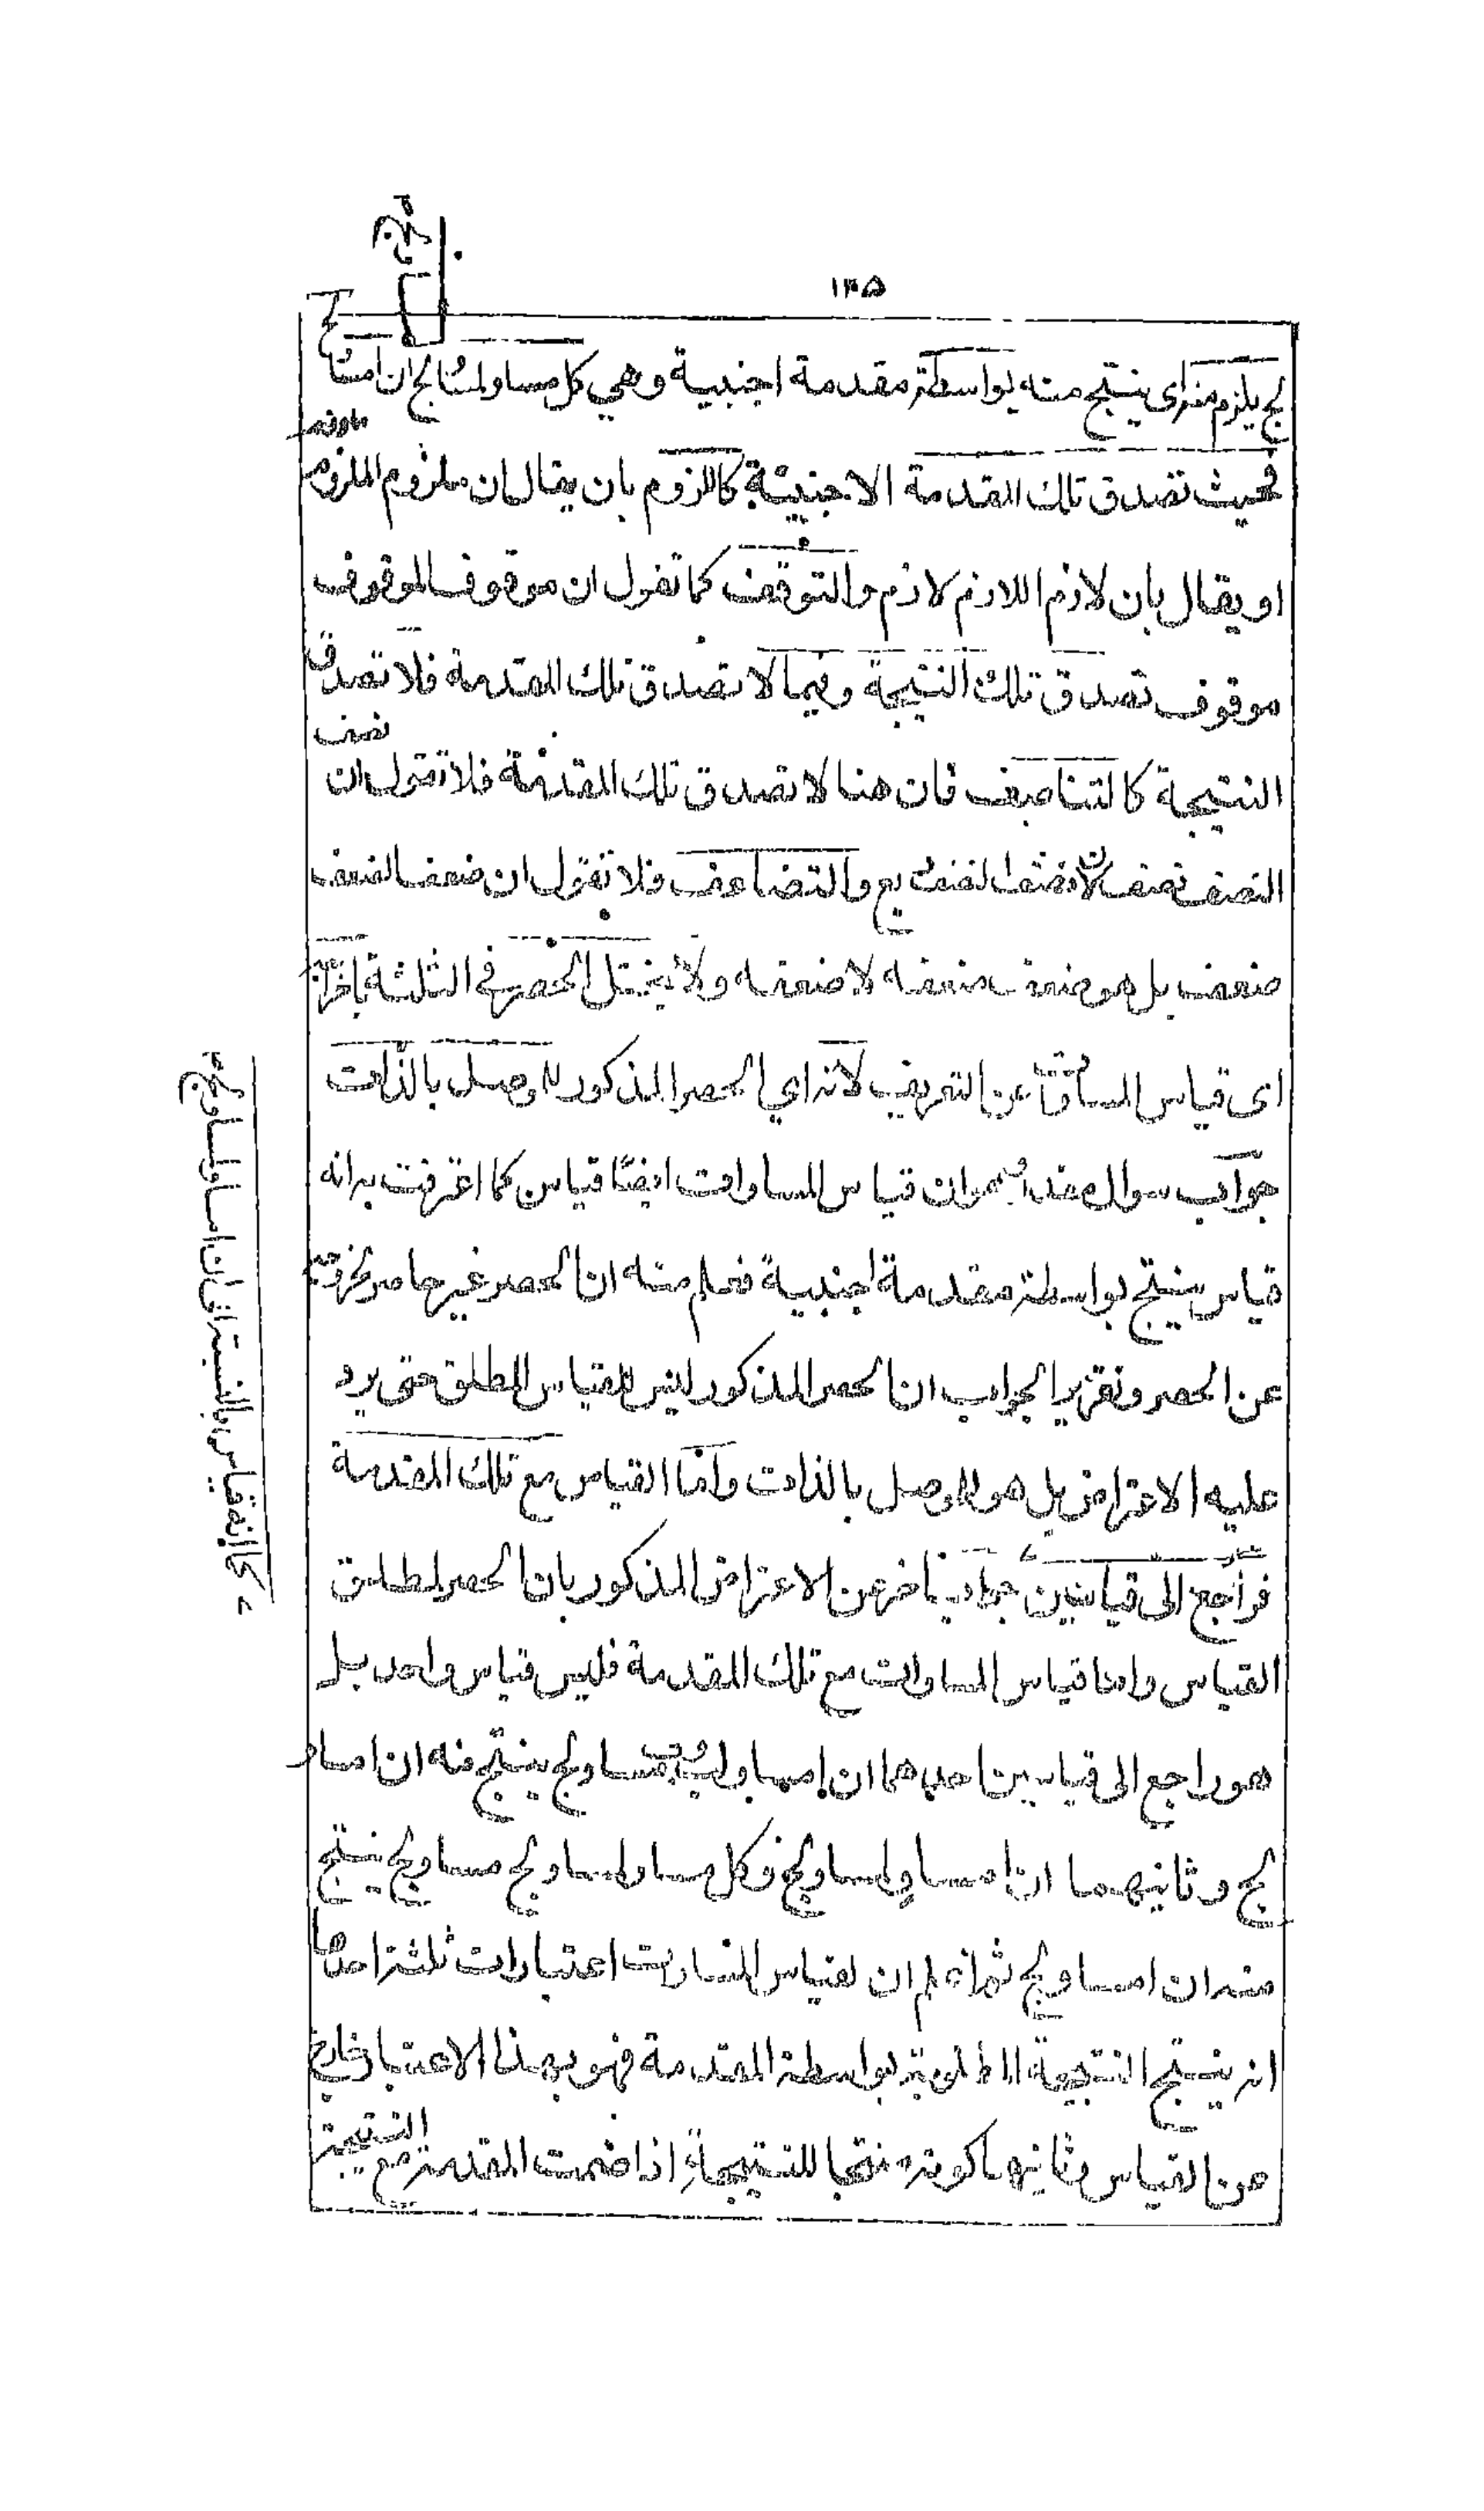 ١٣٥
لج يلزم منه اى ينتج منه بواسطة مقدمة اجنبية وهي كل مساو لمساو لج ان امساو
فحيث تصدق تلك المقدمة الاجنبية كاللزوم بان يقال ان ملزوم الملزوم ملزوم
او يقال بان لازم اللازم لازم والتوقف كما تقول ان موقوف الموقوف
موقوف تصدق تلك النتيجة وفيما لا تصدق تلك المقدمة فلا تصدق
النتيجة كالتناصف فان هنا لا تصدق تلك المقدمة فلا تقول ان نصف
النصف نصف لان نصف النصف ربع والتضاعف فلا تقول ان ضعف الضعف
ضعف بل هو ضعف ضعفه لا ضعفه ولا يختل الحصر في الثلثة باخراجه
اى قياس المساوات عن التعريف لانه اي الحصر المذكور للموصل بالذات
جواب سوال مقدر هو ان قياس المساوات ايضًا قياس كما اعترفت به انه
قياس ينتج بواسطة مقدمة اجنبية فعلم منه ان الحصر غير حاصر لخروجه
عن الحصر وتقرير الجواب ان الحصر المذكور ليس للقياس المطلق حتى يرد
عليه الاعتراض بل هو للموصل بالذات وامّا القياس مع تلك المقدمة
فراجع الى قياسين جواب اخر عن الاعتراض المذكور بان الحصر لمطلق
القياس واما قياس المساوات مع تلك المقدمة فليس قياس واحد بل
هو راجع الى قياسين احدهما ان امساو لب وب مساو لج ينتج منه ان امساو
لج وثانيهما ان امساو لمساو لج وكل مساو لمساو لج مساو لج ينتج
منه ان امساو لج ثم اعلم ان لقياس المساوات اعتبارات ثلثة احدها
انه ينتج النتيجة المطلوبة بواسطة المقدمة فهو بهذا الاعتبار خارج
عن القياس وثانيها كونه منتجا للنتيجة اذا ضمت المقدمة مع النتيجة